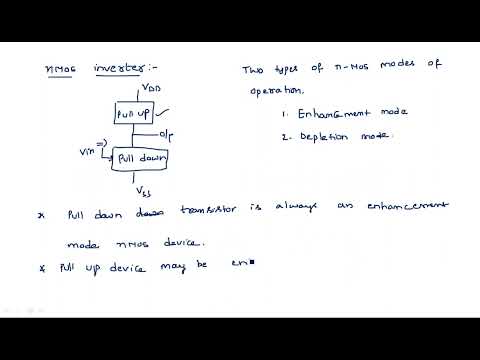 nMOS inverter:-
VDD
Pull up
O/P
Vin
Pull down
VSS
Two types of n-MOS modes of
operation.
1. Enhancement mode
2. Depletion mode.
* Pull down transistor is always an enhancement
mode nMOS device.
* Pull up device may be en